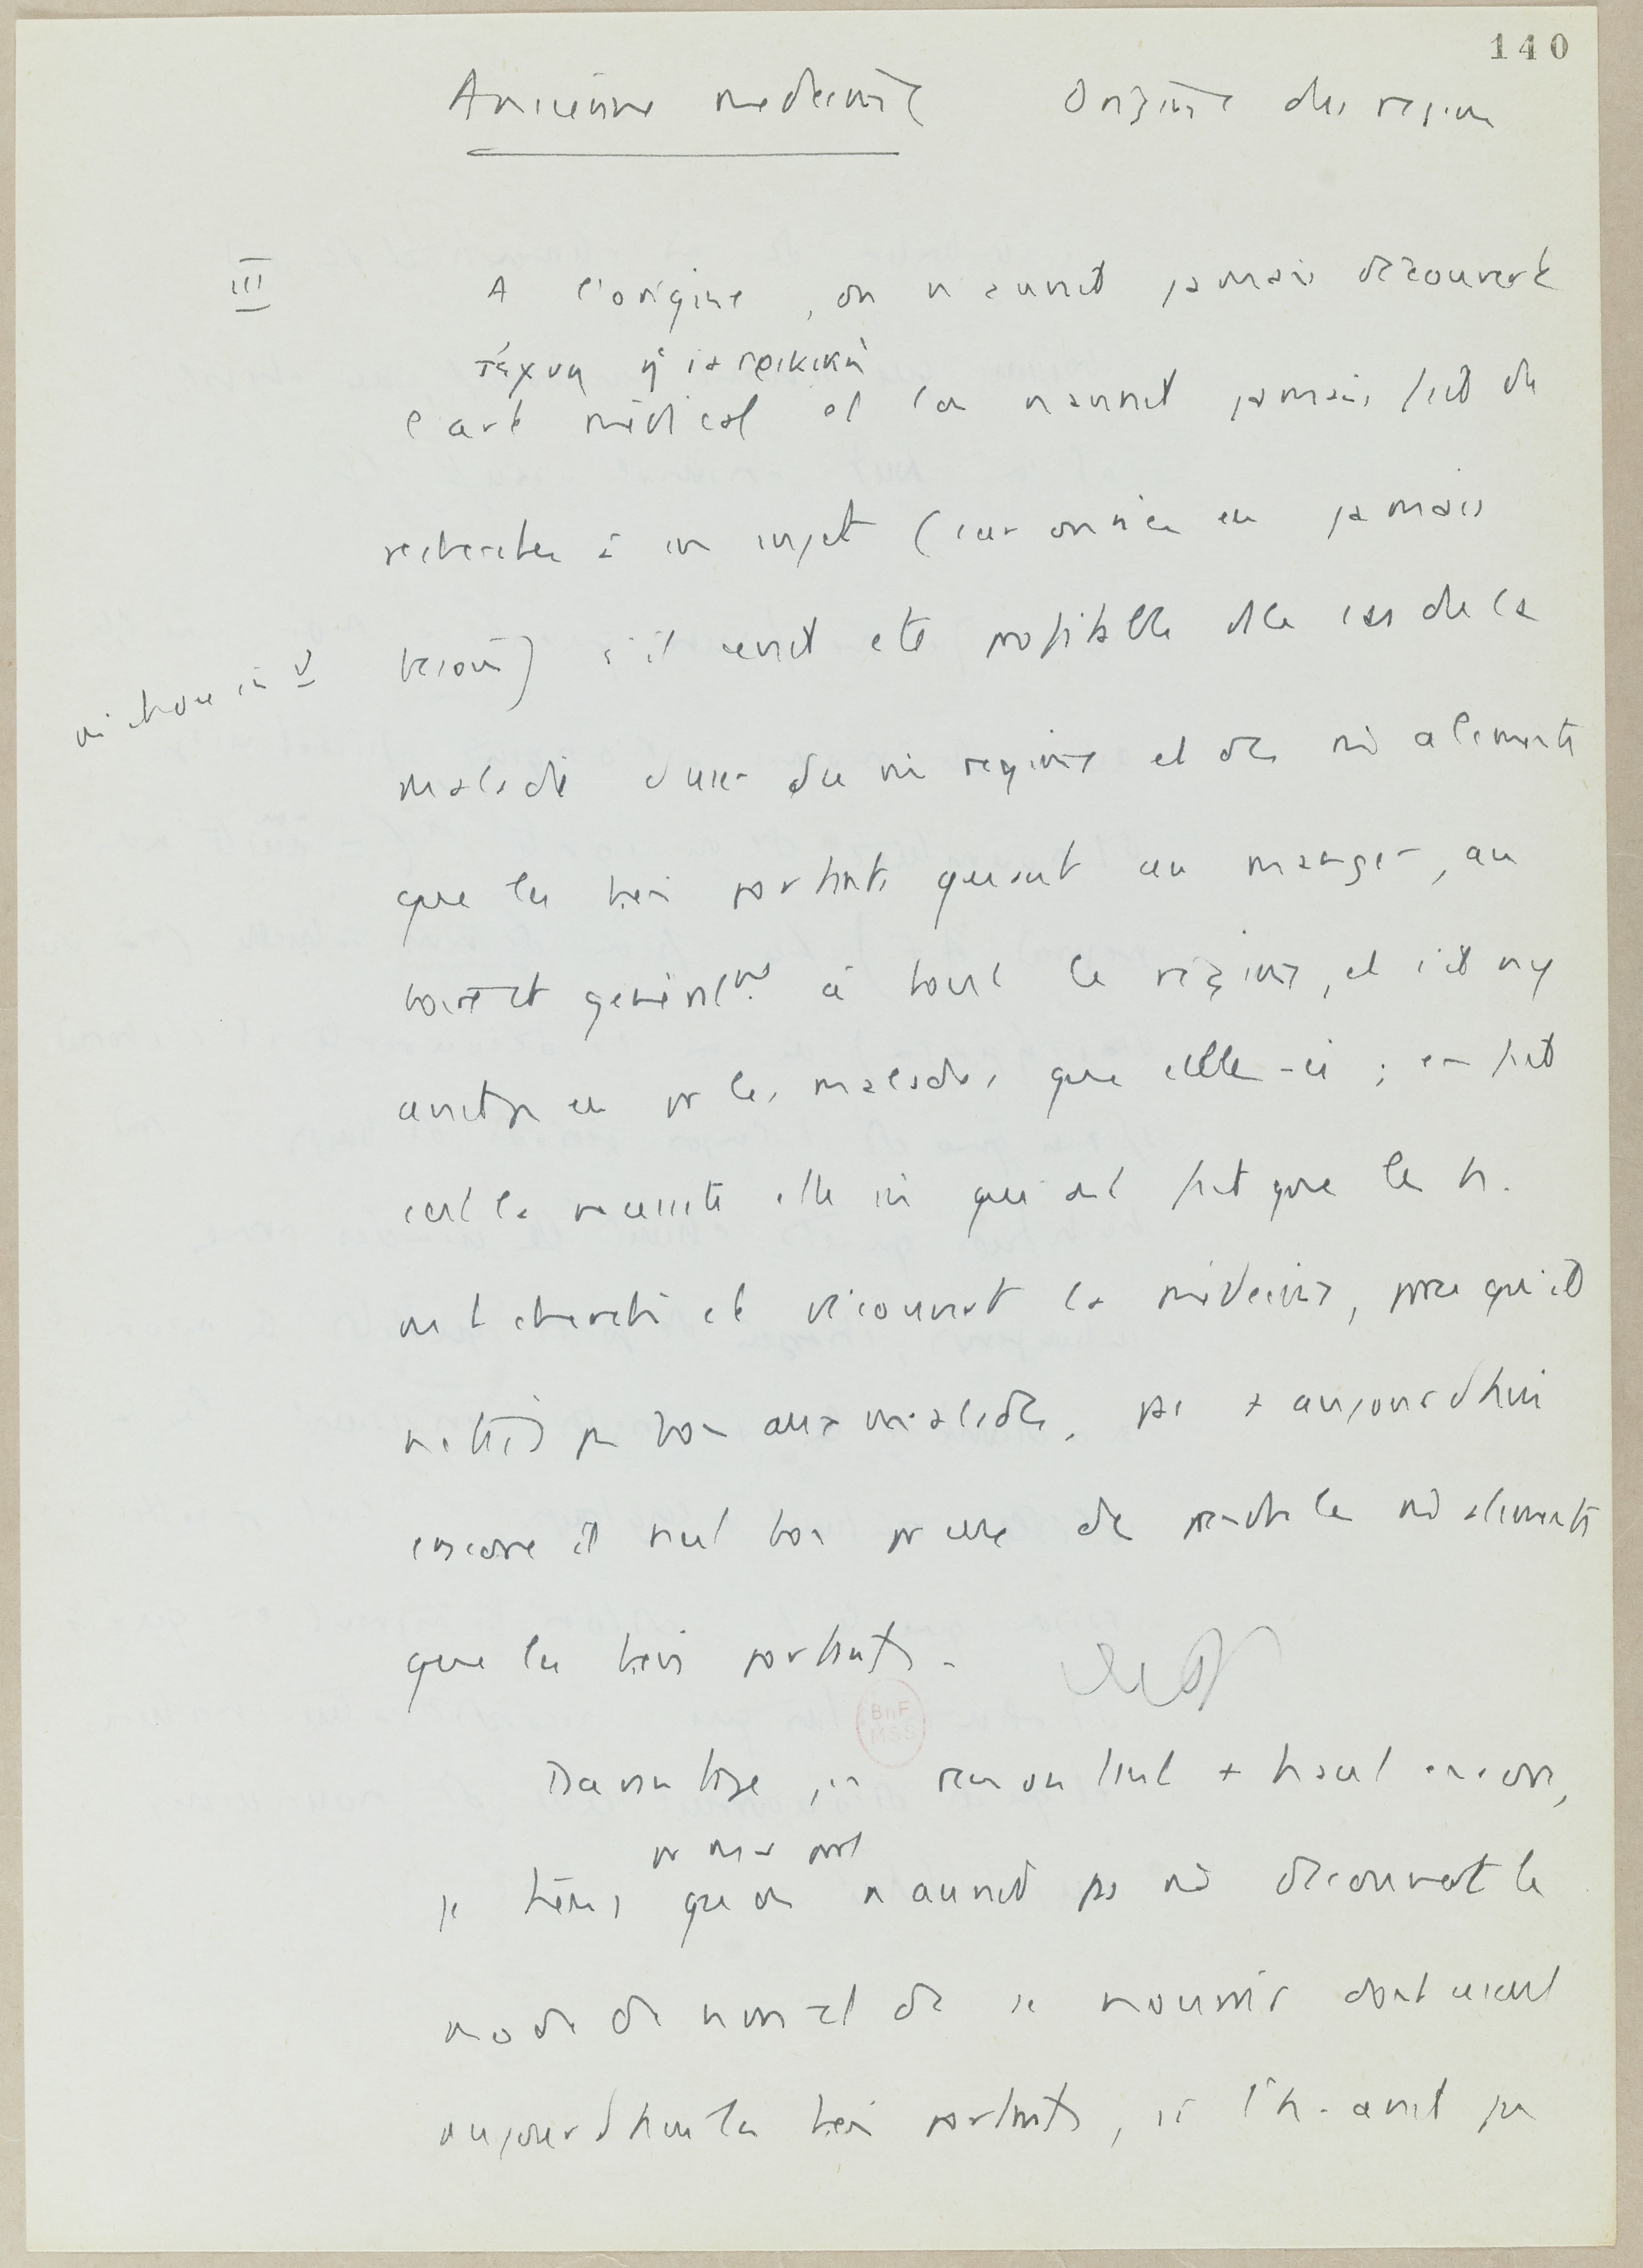 140
Ancienne medecine Origine des regim
III A l'origine, on n'aurait jamais découvert
τέχνη ἡ ἰατρικικὴ
l'art médical et l'on n'aurait jamais fait de
recherches à son sujet (car on n'en eu jamais
besoin) s'il avait été profitable ds le cas de la
V
maladie d'user du mê regime et des mê aliments
que les bien portants qui ont au manger, au
boire et généralmt à tout le régime, et s'il n'y
avait pu eu pr les malades que celle-ci ; en fait
c'est la nécessité elle mê qui ont fait que les h.
ont cherché et découvert la médecine, parce qu'il
n'était pas bon aux malades, pas + aujourd'hui
encore il n'est bon pr eux de prendre les mê aliments
que les bien portants.
BnF
MSS
Davantage, en remontant + haut encore,
pr ma part
je tiens que on n'aurait pas mê découvert le
mode de vivre et de se nourrir dont usent
aujourd'hui les bien portants, si l'h. avait pu